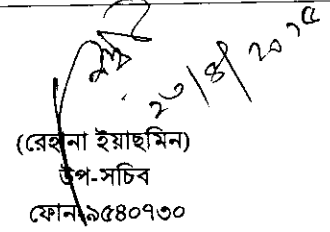 ২৩/৪/২০১৫
(রেহানা ইয়াছমিন)
উপ-সচিব
ফোন-৯৫৪০৭৩০